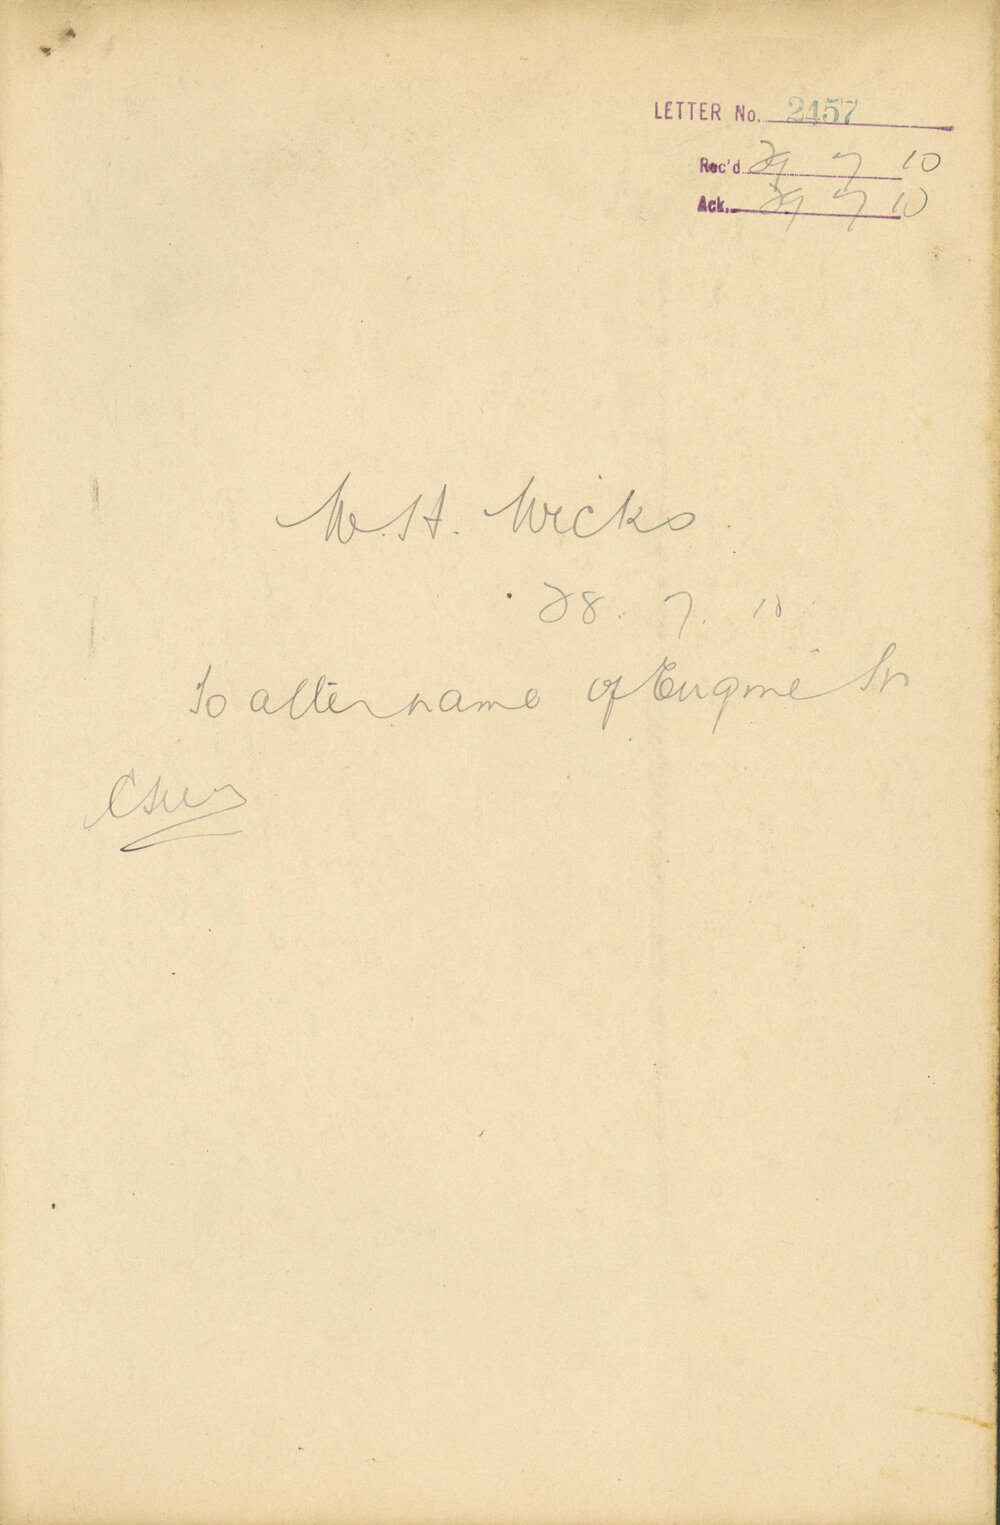 LETTER No. 2457
Rec'd 29 7 10
Ack. 29 7 10
W. H. Wicks
28. 7. 10
To alter name of Eugene St